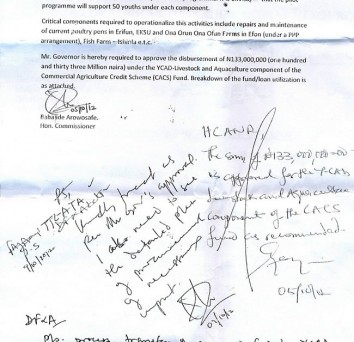 programme will support 50 youths under each component.
Critical components required to operationalize this activities include repairs and maintenance
of current poultry pens in Erifun, EKSU and Ona Orun Ona Ofun Farms in Efon (under a PPP
arrangement), Fish Farm – e.t.c.
Mr. Governor is hereby required to approve the disbursement of N133,000,000 (one hundred
and thirty three Million naira) under the YCAD-Livestock and Aquaculture component of the
Commercial Agriculture Credit Scheme (CACS) Fund. Breakdown of the fund/loan utilization is
as attached.
05/10/12
Babajide Arowosafe.
Hon. Commissioner
HCANR
The sum of N133,000,000=00
is approved for the YCAD
Livestock and Aquaculture
component of the CACS
fund as recommended.
05/10/12
PS,
Kindly proceed as
per the Gov's approval.
I also need to see
the detailed plan
of procurement
of necessary
input.
DF&A